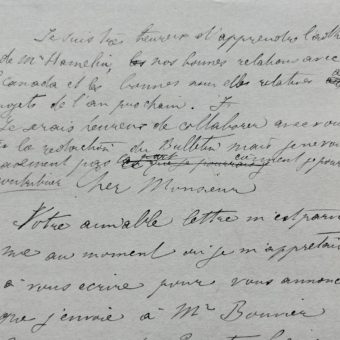 Je suis très heureux d'apprendre
de Mr Hamelin, nos bonnes relations avec
Canada et les bonnes nouvelles relatives
projets de l'an prochain.
Je serais heureux de collaborer avec vous
à la rédaction du Bulletin mais je ne vois
pas comment je pour
contribuer Cher Monsieur
Votre aimable lettre m'est parve
me au moment où je m'apprêtais
à vous écrire pour vous annonc
que j'envoie à Mr Bouvier